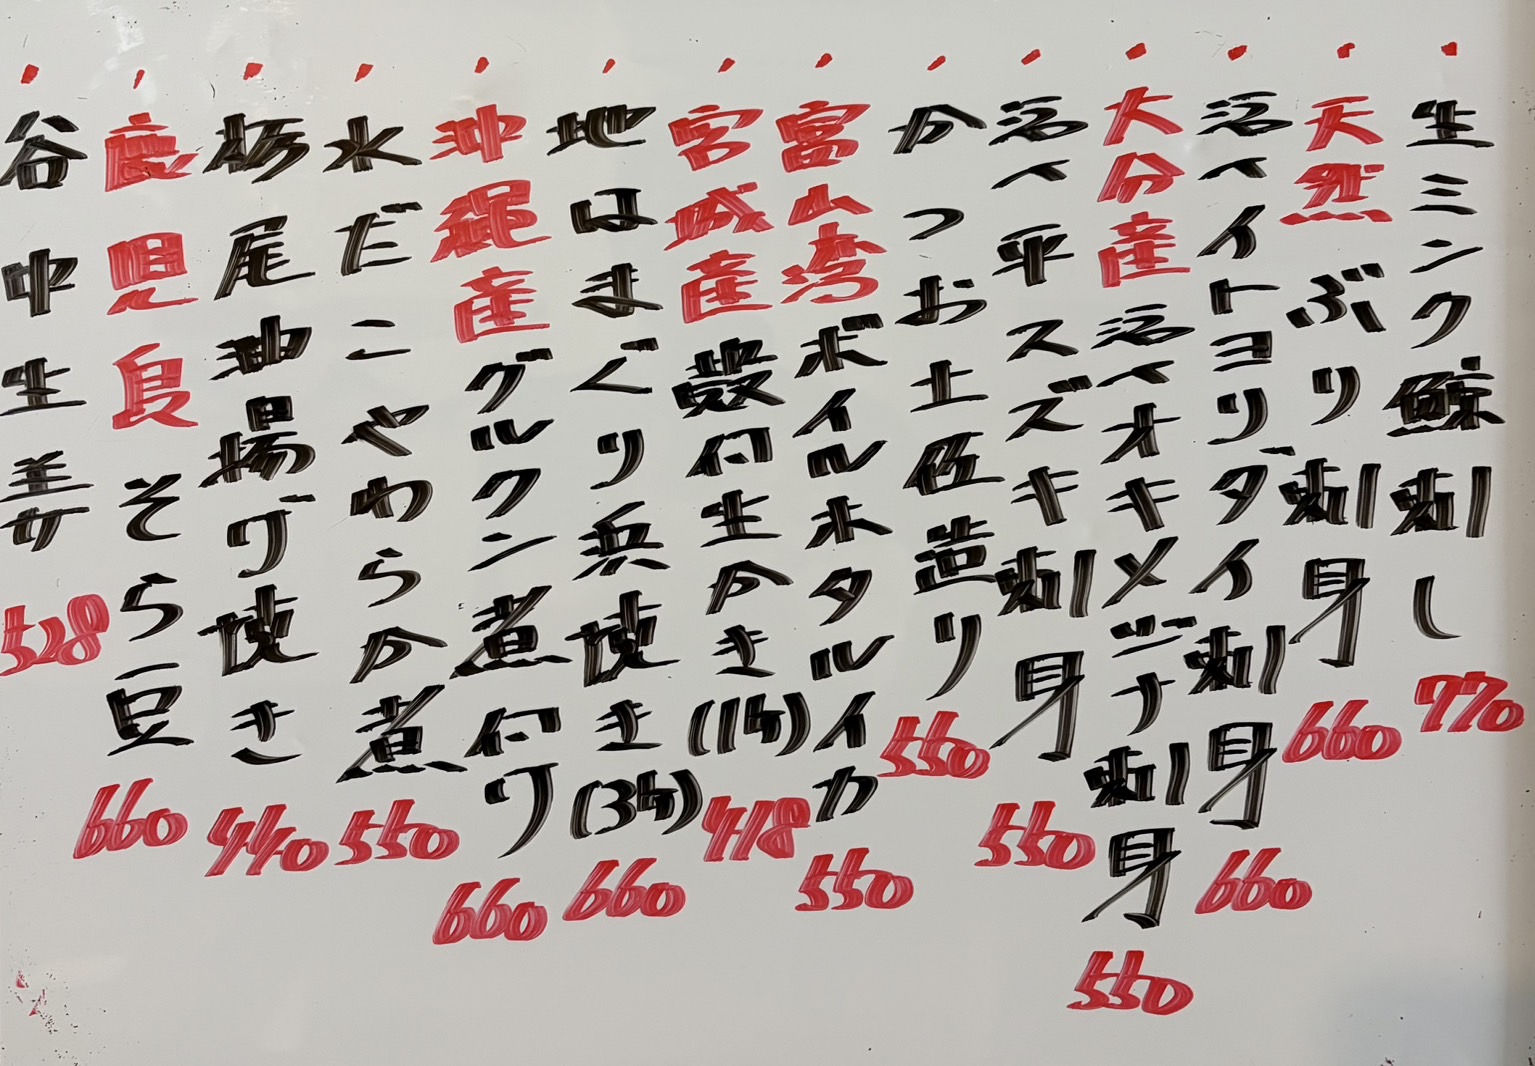 生ミンク鯨刺し 770
天然ぶり刺身 660
活〆イトヨリダイ刺身 660
大分産活〆オキメジナ刺身 550
活〆平スズキ刺身 550
かつお土佐造り 550
富山湾ボイルホタルイカ 550
宮城産殻付生かき(1ヶ) 418
地はまぐり浜焼き(3ヶ) 660
沖縄産グルクン煮付け 660
水だこやわらか煮 550
栃尾油揚げ焼き 440
鹿児島そら豆 660
谷中生姜 528